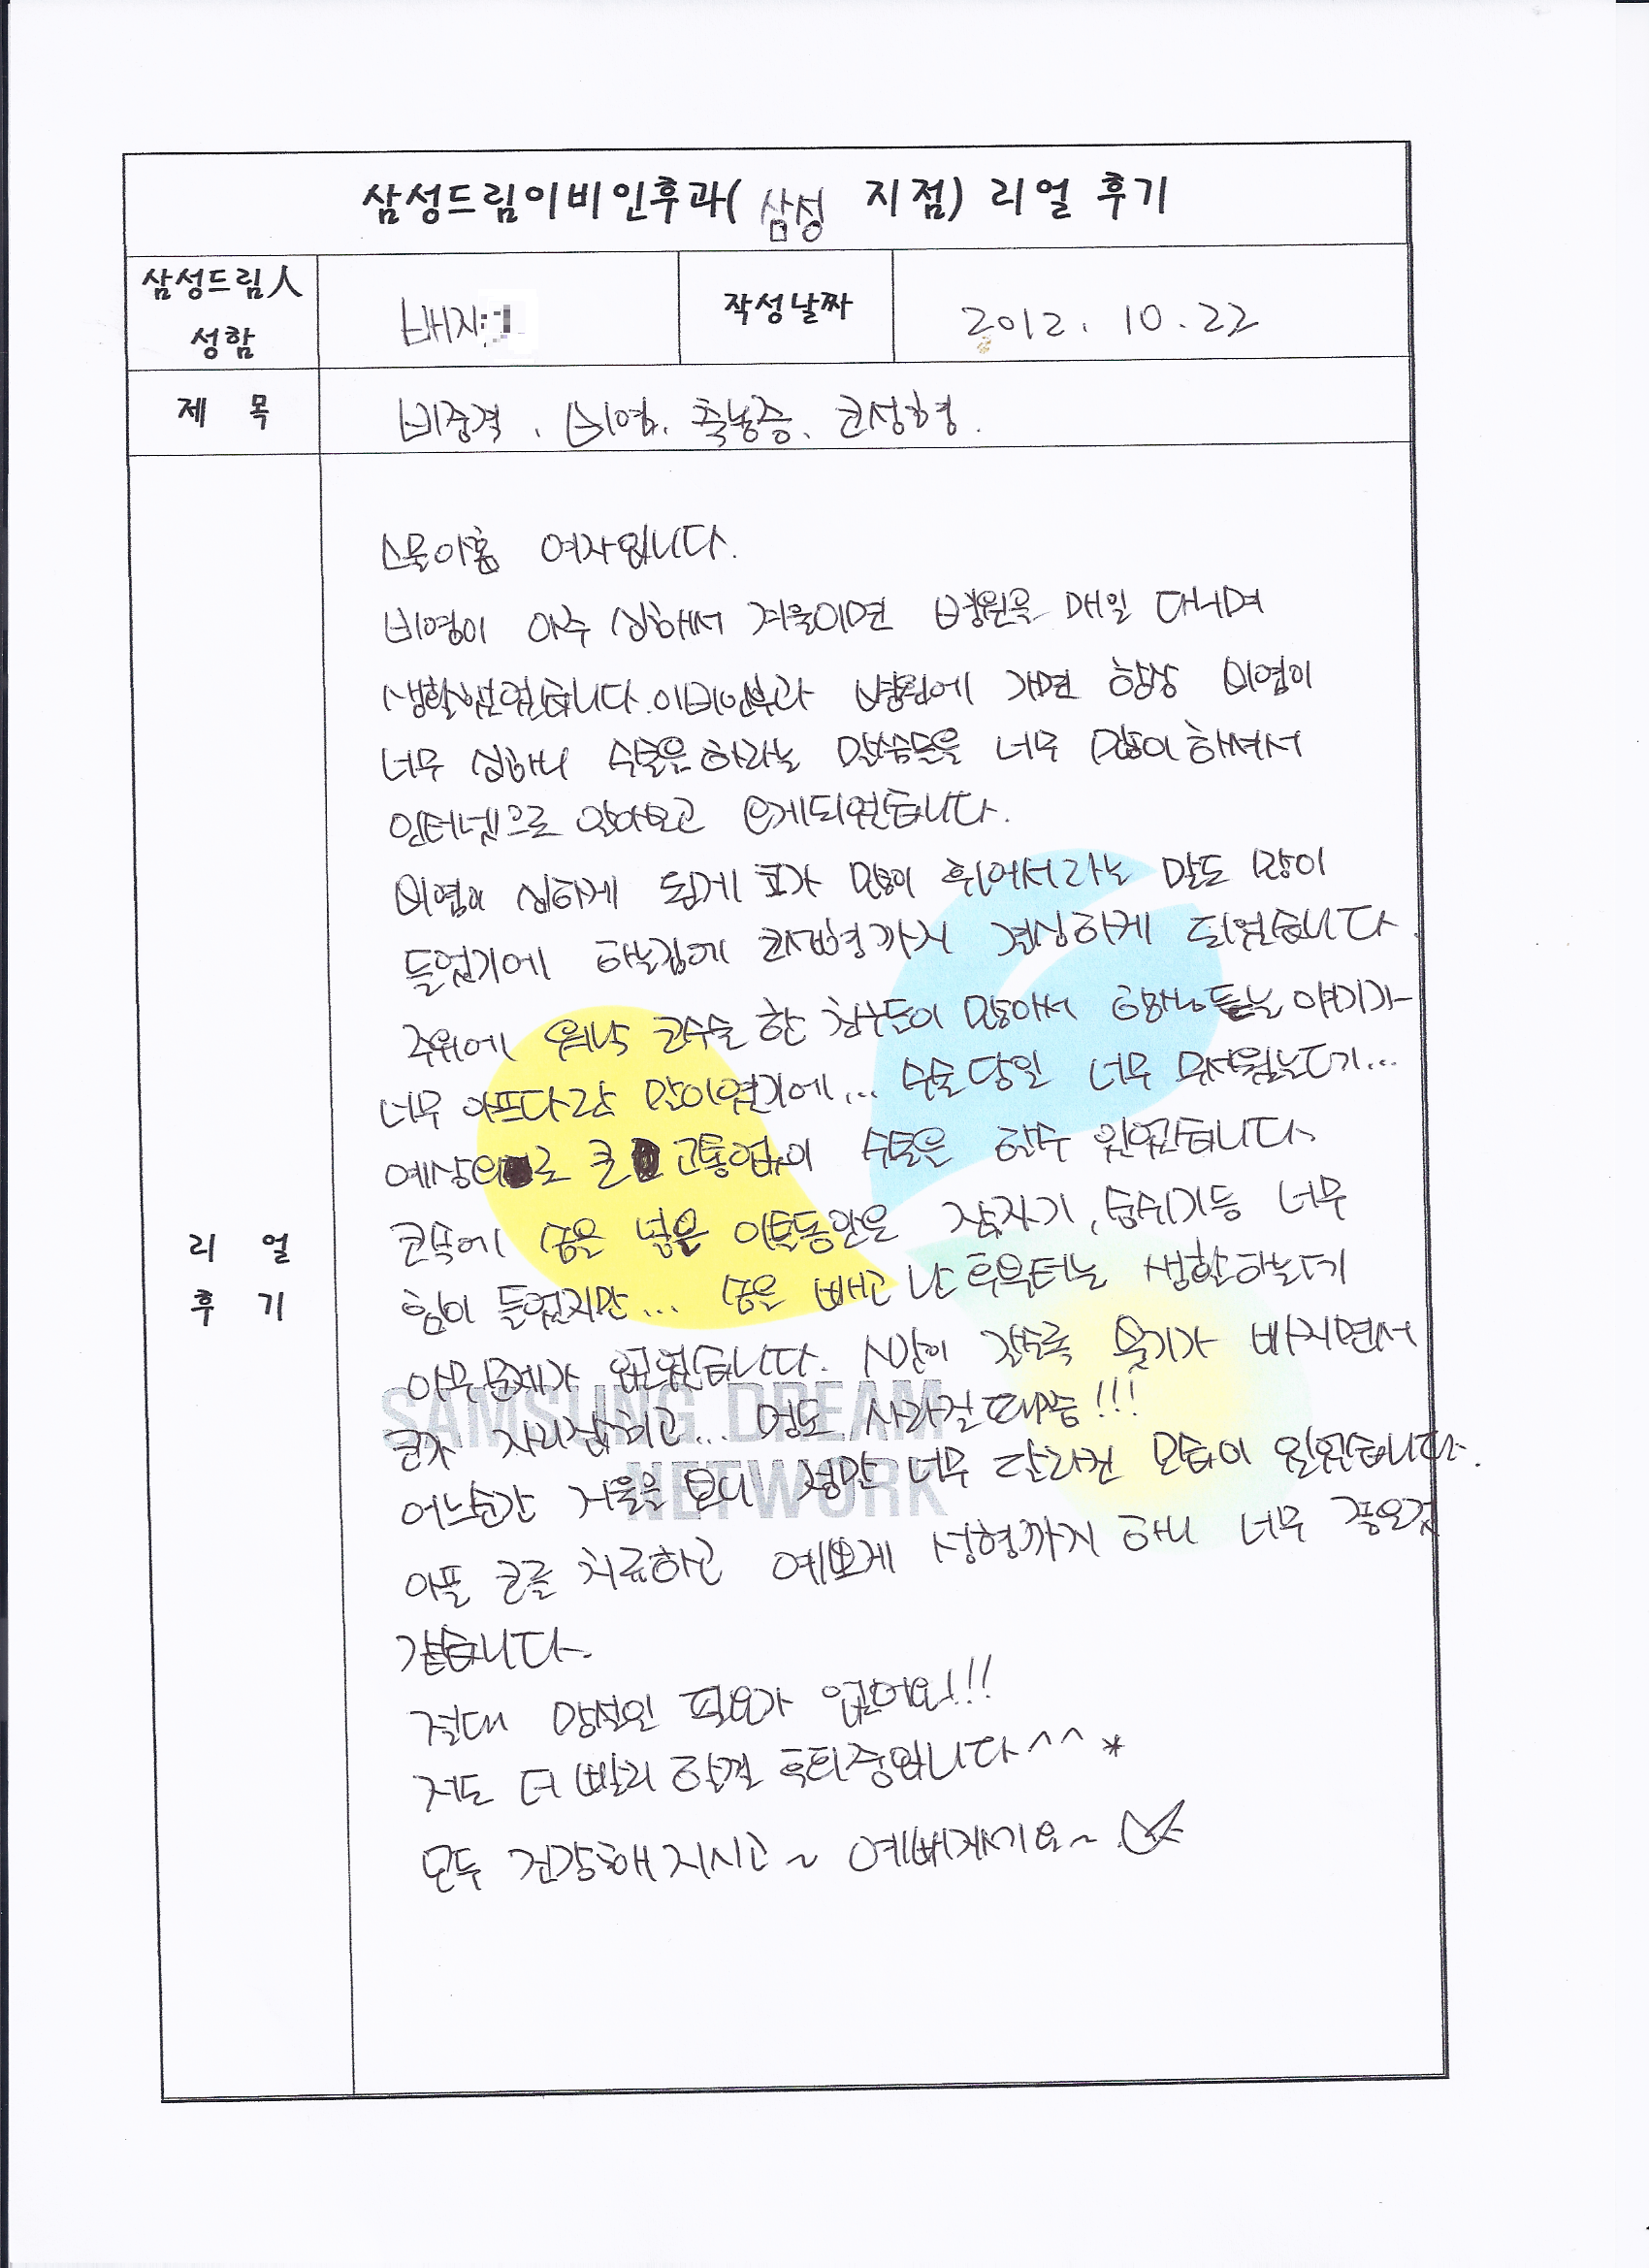 삼성드림이비인후과( 삼성 지점) 리얼 후기
삼성드림人 성함
배지
작성날짜
2012. 10. 22
제 목
비중격, 비염, 축농증, 코성형.
리 얼
후 기
스물아홉 여자입니다.
비염이 아주 심해서 겨울이면 병원을 매일 다니며
생활했었습니다. 이비인후과 병원에 가면 항상 비염이
너무 심하니 수술을 하라는 말씀들을 너무 많이 하셔서
인터넷으로 알아보고 오게되었습니다.
비염이 심하게 된게 코가 많이 휘어서라는 말도 많이
들었기에 하는김에 코성형까지 결심하게 되었습니다.
주위에 워낙 코수술 한 친구들이 많아서 하나 듣는 얘기가
너무 아프다란 말이였기에... 수술당일 너무 무서웠는데...
예상외로 큰 고통없이 수술은 할수 있었습니다
콧속에 솜을 넣은 이틀동안은 잠자기, 숨쉬기등 너무
힘이 들었지만... 솜을 빼고 난 후부터는 생활하는데
아무문제가 없었습니다. 시간이 갈수록 붓기가 빠지면서
코가 자리잡히고... 멍도 사라질때쯤!!!
어느순간 거울을 보니 정말 너무 달라진 모습이 있었습니다.
아픈 코를 치료하고 예쁘게 성형까지 하니 너무 좋은것
같습니다.
절대 망설일 필요가 없어요!!!
저도 더 빨리 할껄 후회중입니다^^*
모두 건강해지시고~ 예뻐지세요~
SAMSUNG DREAM
NETWORK